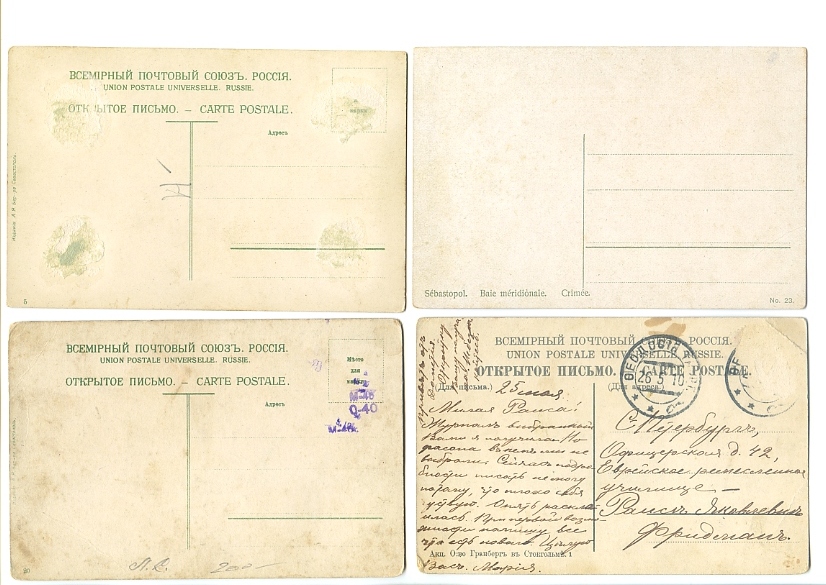 ВСЕМІРНЫЙ ПОЧТОВЫЙ СОЮЗЪ. РОССІЯ.
UNION POSTALE UNIVERSELLE. RUSSIE.
ОТКРЫТОЕ ПИСЬМО. – CARTE POSTALE.
Адресъ
5
Sébastopol. Baie méridionale. Crimée.
No. 23.
ВСЕМІРНЫЙ ПОЧТОВЫЙ СОЮЗЪ. РОССІЯ.
UNION POSTALE UNIVERSELLE. RUSSIE.
ОТКРЫТОЕ ПИСЬМО. – CARTE POSTALE.
Мѣсто
для
марки
Адресъ
М-45
Q-40
200-
ВСЕМІРНЫЙ ПОЧТОВЫЙ СОЮЗЪ. РОССІЯ.
UNION POSTALE UNIVERSELLE. RUSSIE.
ОТКРЫТОЕ ПИСЬМО. – CARTE POSTALE.
(Для письма.)
(Для адреса.)
ѲЕОДОСІЯ
26 5 10
25 мая
Милая Раиса!
Журналъ
Вами я получила. Но
фасона въ немъ мы не
выбрали. Сейчасъ подро
писать не могу
потому, что плохо себя
чувствую. Опять
лась. При первой возм
напишу все
что есть новаго. Цѣлую
Васъ. Марія.
С. Петербургъ,
Офицерская д. 42,
Еврейское ремесленное
училище –
Раисѣ Яковлевнѣ
Фридманъ.
Акц. О-во Гранбергъ въ Стокгольмѣ. 1